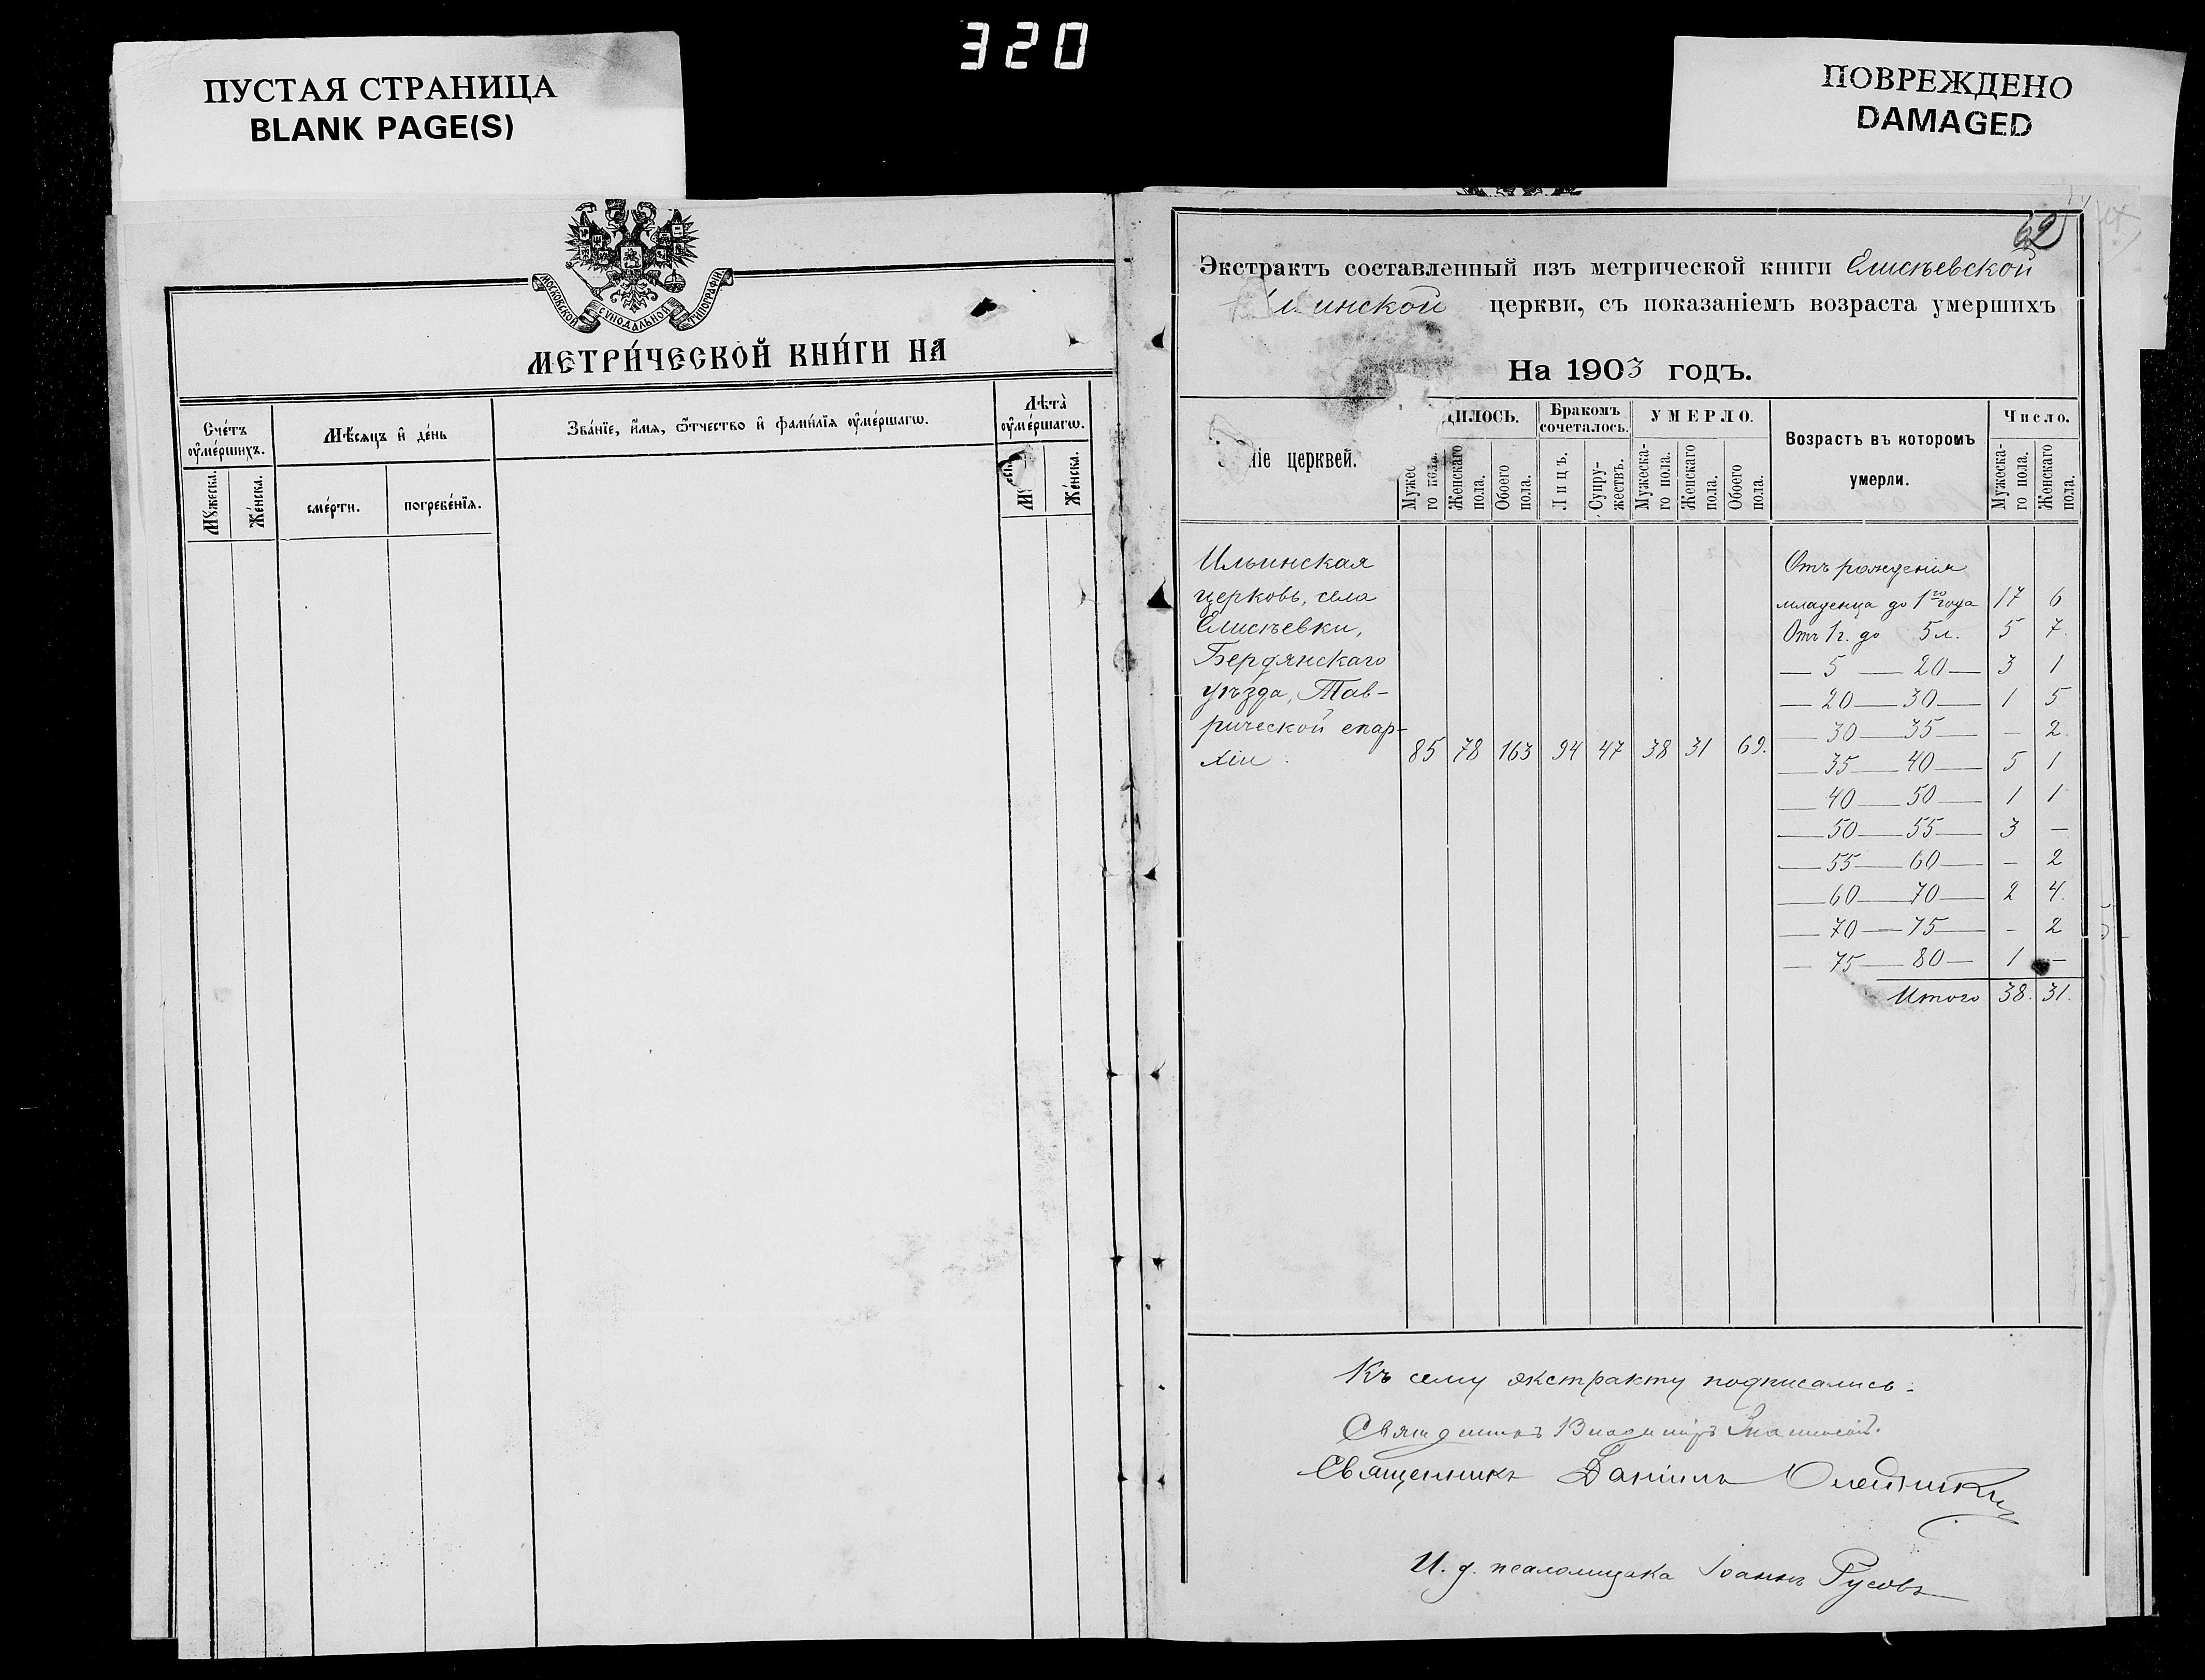 320
ПУСТАЯ СТРАНИЦА
BLANK PAGE(S)
ПОВРЕЖДЕНО
DAMAGED
МОСКОВСКОЙ СѴНОДАЛЬНОЙ ТИПОГРАФІИ
МЕТРИ́ЧЕСКОЙ КНИ́ГИ НА
Сче́тъ
ᲂу҆ме́ршихъ.
Мѣ́сяцъ и҆ де́нь
Зва́нїе, и҆́мя, ѻ҆́тчество и҆ фами́лїя ᲂу҆ме́ршагѡ.
Лѣ̑та
ᲂу҆ме́ршагѡ.
Мꙋ́жеска.
Же́нска.
сме́рти.
погребе́нїя.
Же́нска.
62
Экстрактъ составленный изъ метрической книги Елисѣевской
инской церкви, съ показаніемъ возраста умершихъ
На 1903 годъ.
ніе церквей.
ДИЛОСЬ.
Бракомъ
сочеталось.
УМЕРЛО.
Возрастъ въ которомъ
умерли.
Число.
Мужес
го пола.
Женскаго
пола.
Обоего
пола.
Лицъ.
Супру-
жествъ.
Мужеска-
го пола.
Женскаго
пола.
Обоего
пола.
Мужеска-
го пола.
Женскаго
пола.
Ильинская
церковь, села
Елисѣевки,
Бердянскаго
уѣзда, Тав-
рической епар-
хіи.
85 78 163 94 47 38 31 69.
Отъ рожденія
младенца до 1го года 17 6
Отъ 1г. до 5л. 5 7.
— 5 — 20 — 3 1
— 20 — 30 — 1 5
— 30 — 35 — - 2.
— 35 — 40 — 5 1
— 40 — 50 — 1 1
— 50 — 55 — 3 —
— 55 — 60 — - 2
— 60 — 70 — 2 4.
— 70 — 75 — - 2
— 75 — 80 — 1 —
Итого 38. 31.
Къ сему экстракту подписались:
Священникъ Владиміръ
Священникъ Даніилъ Олейникъ
И. д. псаломщика Іоаннъ Русовъ